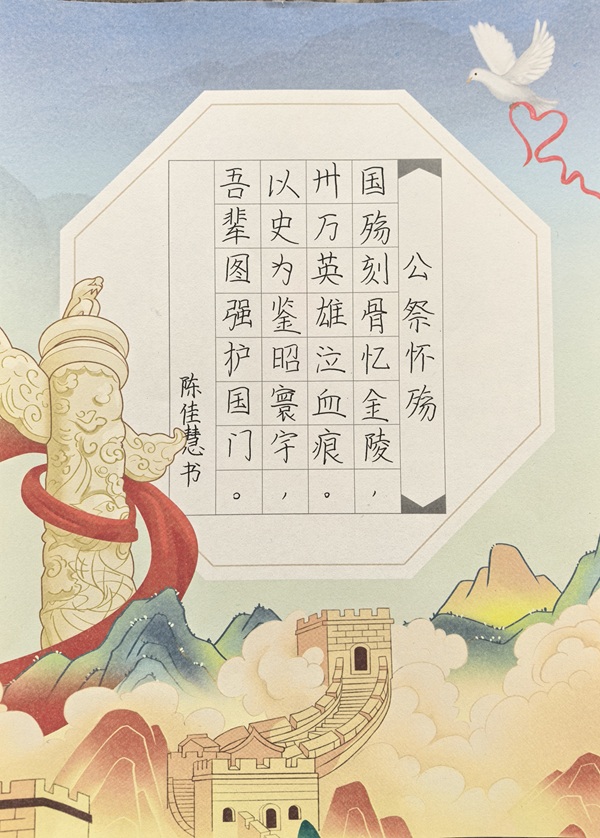 公祭怀殇
国殇刻骨忆金陵，
卅万英雄泣血痕。
以史为鉴昭寰宇，
吾辈图强护国门。
陈佳慧书